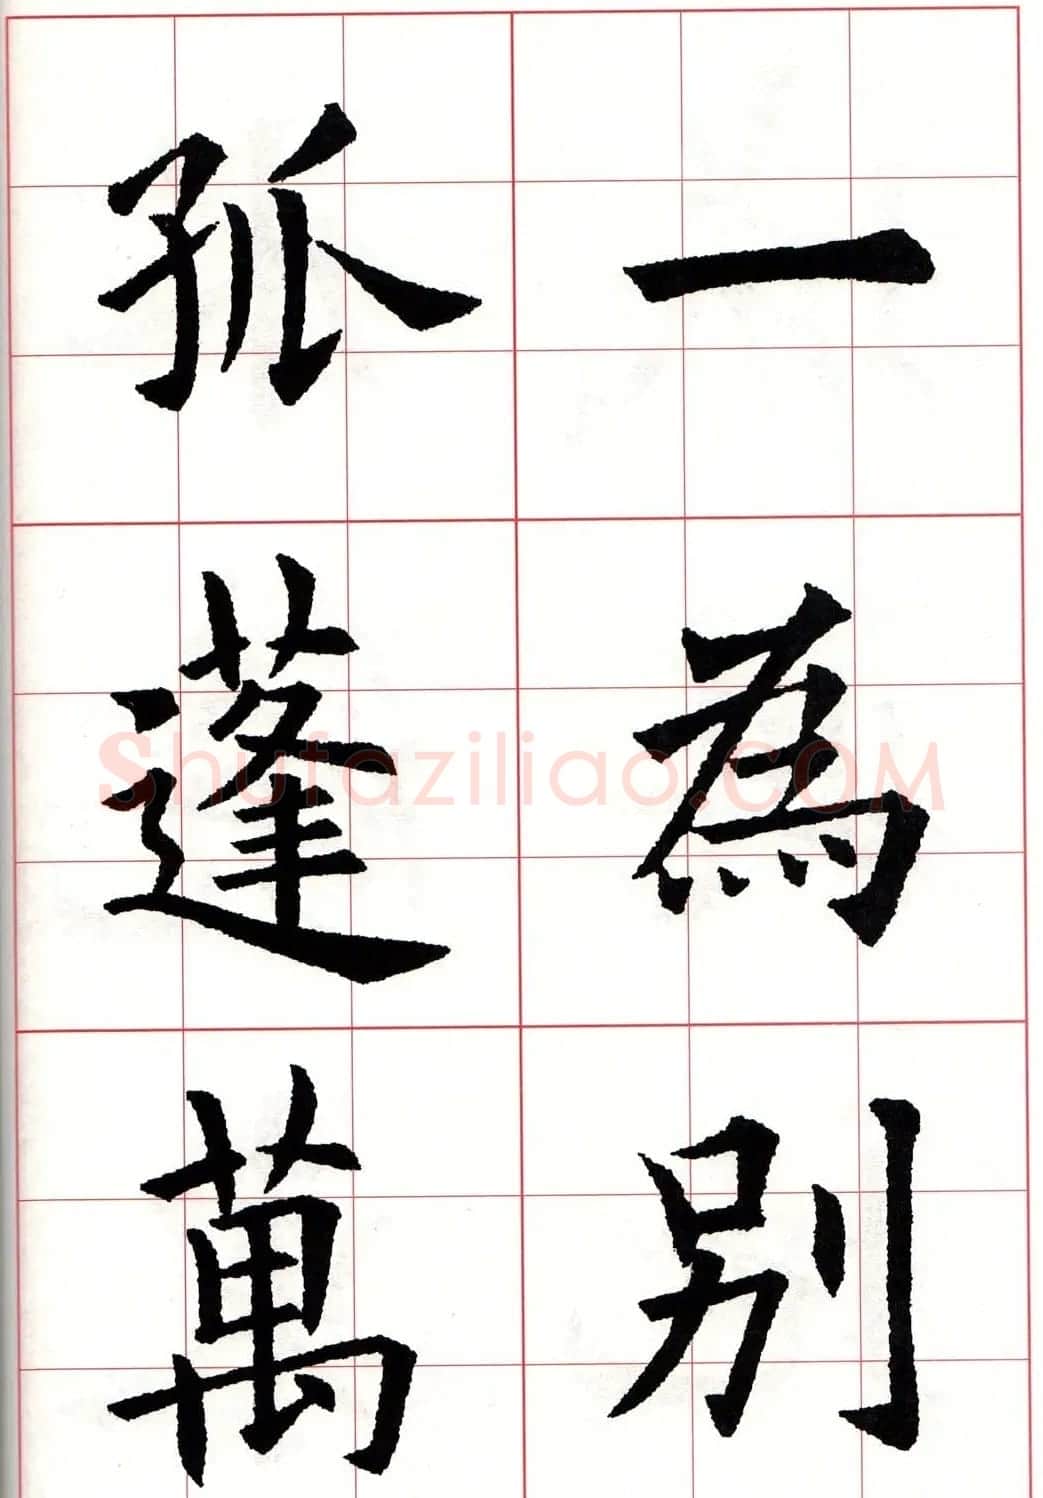 一為别
孤蓬萬
Shufaziliao.COM